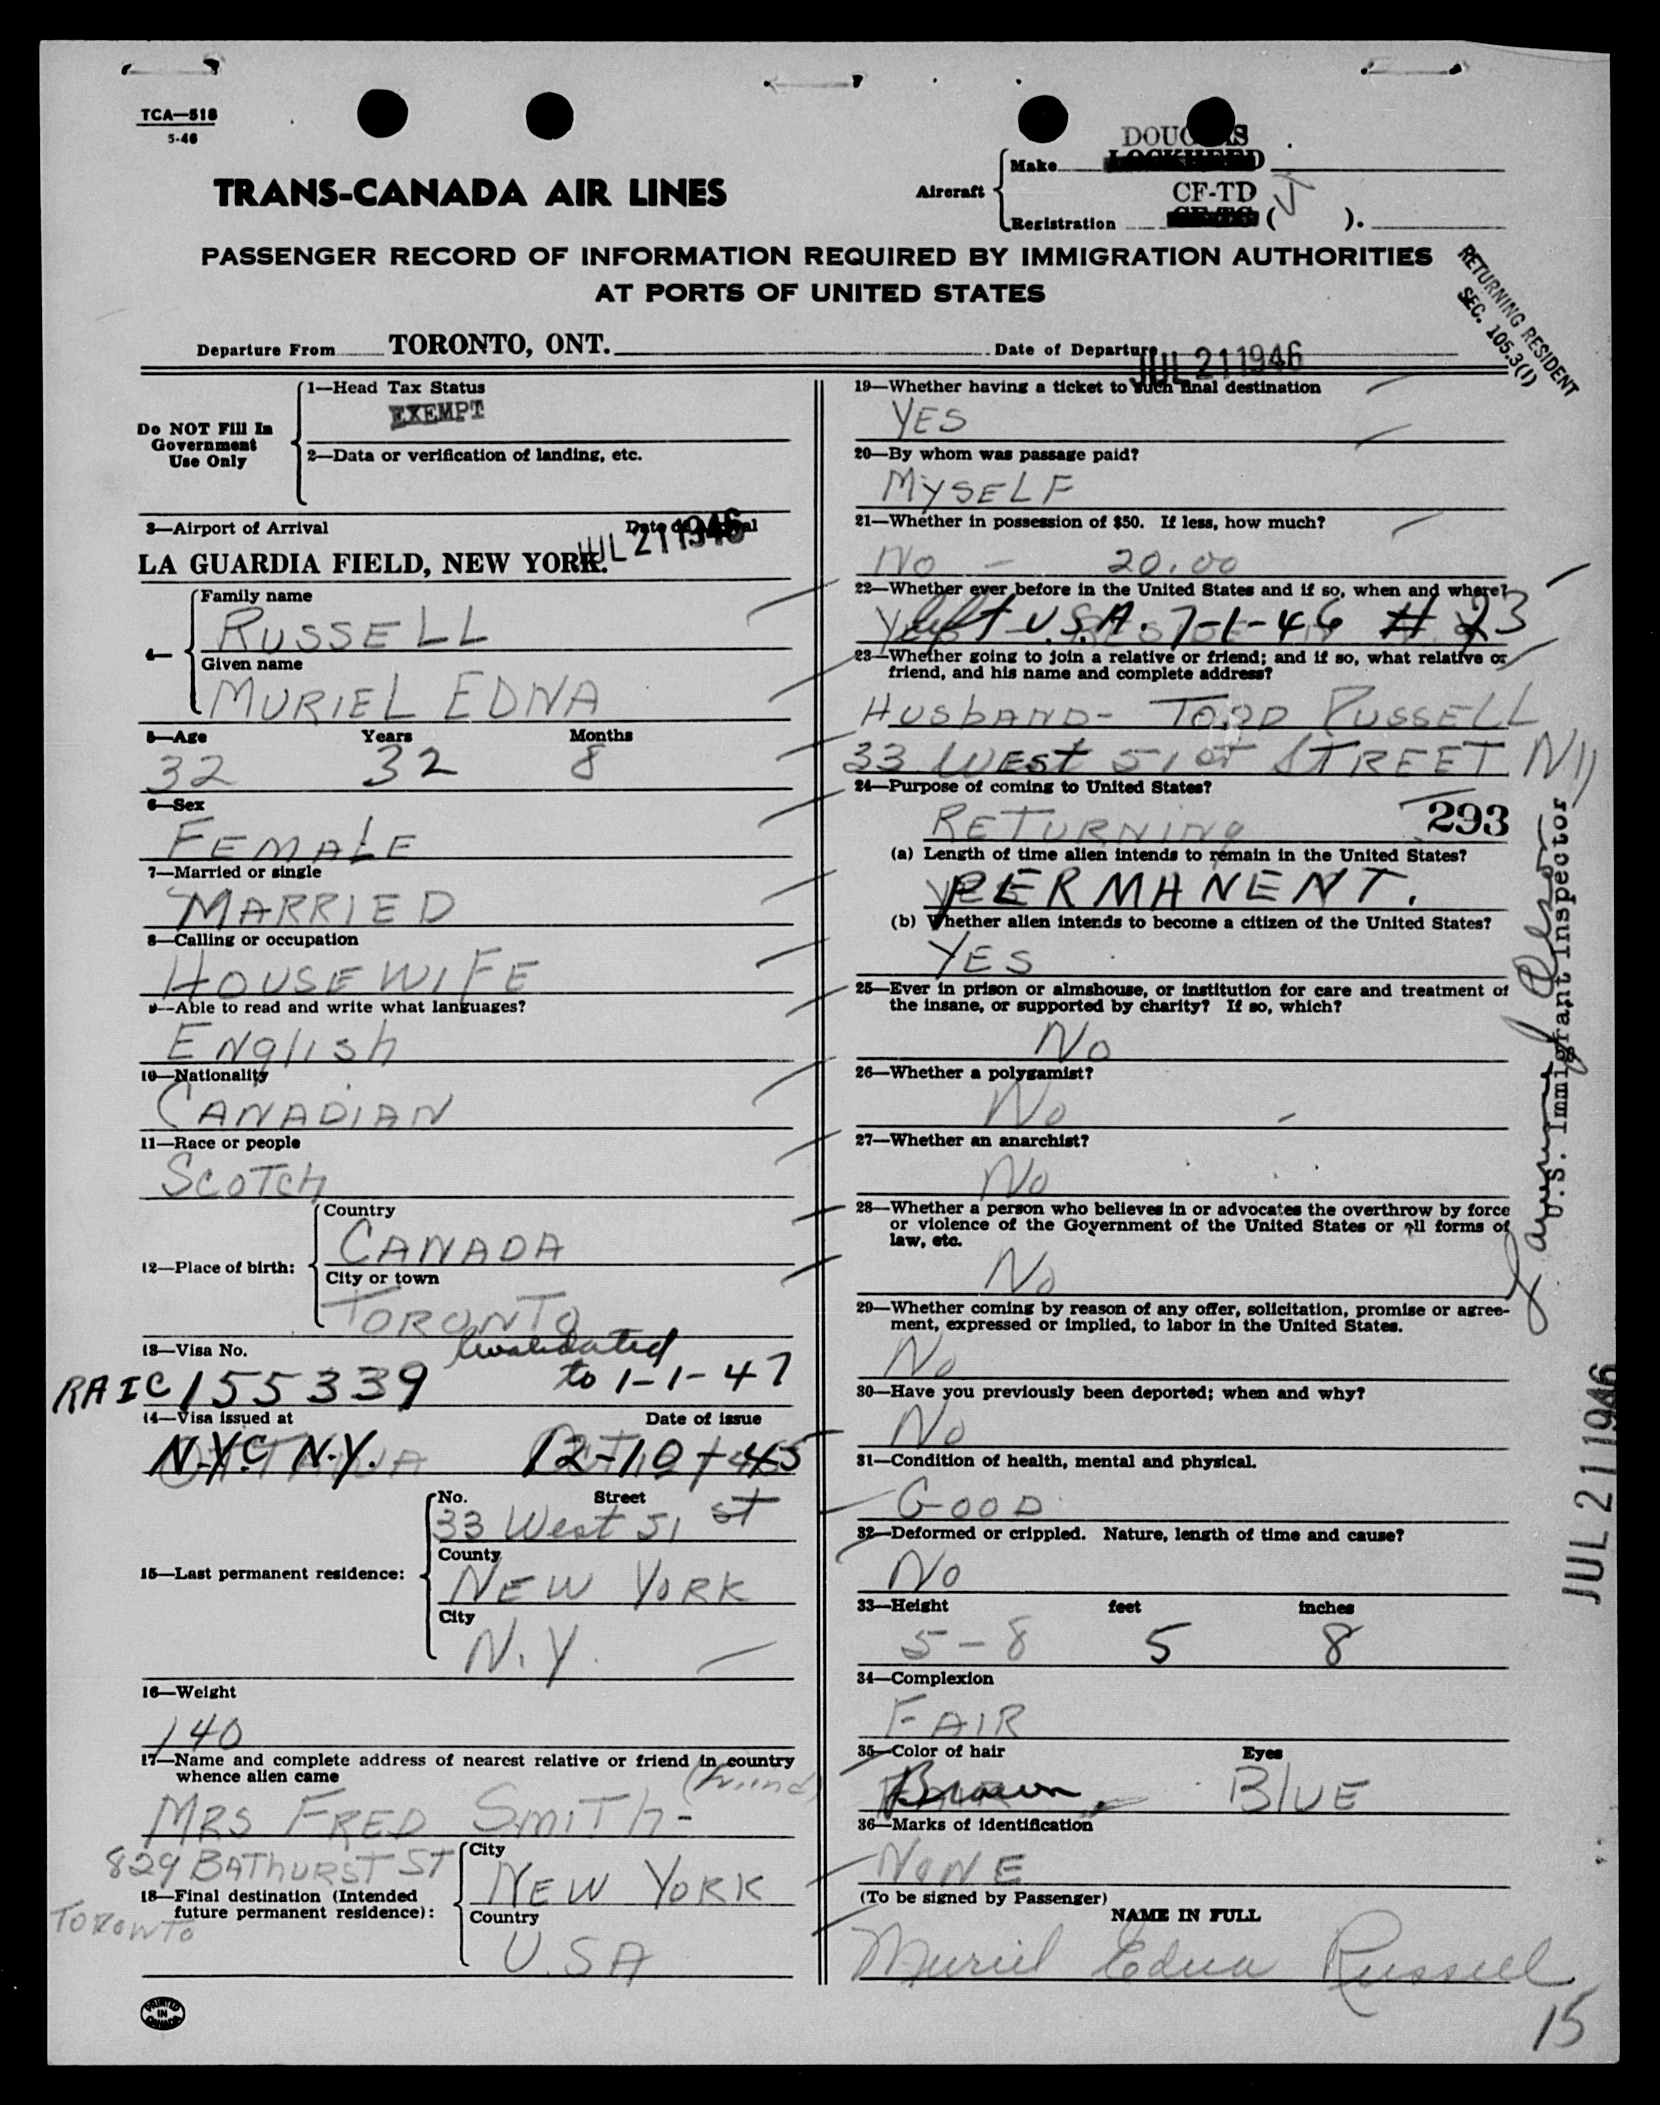 TCA—518
5-46
DOUGLAS
Make LOCKHEED
TRANS-CANADA AIR LINES
Aircraft
CF-TD
Registration CF-TC ( J ).
PASSENGER RECORD OF INFORMATION REQUIRED BY IMMIGRATION AUTHORITIES
AT PORTS OF UNITED STATES
RETURNING RESIDENT
SEC. 105.3(1)
Departure From TORONTO, ONT. Date of Departure JUL 21 1946
Do NOT Fill In
Government
Use Only
1—Head Tax Status
EXEMPT
2—Data or verification of landing, etc.
3—Airport of Arrival Date of Arrival
LA GUARDIA FIELD, NEW YORK. JUL 21 1946
4—
Family name
RUSSELL
Given name
MURIEL EDNA
5—Age Years Months
32 32 8
6—Sex
FEMALE
7—Married or single
MARRIED
8—Calling or occupation
HOUSEWIFE
9—Able to read and write what languages?
English
10—Nationality
CANADIAN
11—Race or people
SCOTCH
12—Place of birth:
Country
CANADA
City or town
TORONTO
13—Visa No.
RAIC 155339 to 1-1-47
14—Visa issued at Date of issue
N.Y.C N.Y. 12-10-45
15—Last permanent residence:
No. Street
33 West 51 st
County
NEW YORK
City
N.Y.
16—Weight
140
17—Name and complete address of nearest relative or friend in country
whence alien came
(friend)
MRS FRED SMITH-
829 BATHURST ST
TORONTO
18—Final destination (Intended
future permanent residence):
City
NEW YORK
Country
U.S.A
PRINTED
IN
CANADA
19—Whether having a ticket to such final destination
YES
20—By whom was passage paid?
MYSELF
21—Whether in possession of $50. If less, how much?
No - 20.00
22—Whether ever before in the United States and if so, when and where?
left U.S.A. 7-1-46 # 23
23—Whether going to join a relative or friend; and if so, what relative or
friend, and his name and complete address?
HUSBAND- TODD RUSSELL
33 WEST 51 ST STREET NY
24—Purpose of coming to United States?
RETURNING 293
(a) Length of time alien intends to remain in the United States?
PERMANENT.
(b) Whether alien intends to become a citizen of the United States?
YES
25—Ever in prison or almshouse, or institution for care and treatment of
the insane, or supported by charity? If so, which?
No
26—Whether a polygamist?
No
27—Whether an anarchist?
No
28—Whether a person who believes in or advocates the overthrow by force
or violence of the Government of the United States or all forms of
law, etc.
No
29—Whether coming by reason of any offer, solicitation, promise or agree-
ment, expressed or implied, to labor in the United States.
No
30—Have you previously been deported; when and why?
No
31—Condition of health, mental and physical.
GOOD
32—Deformed or crippled. Nature, length of time and cause?
No
33—Height feet inches
5-8 5 8
34—Complexion
FAIR
35—Color of hair Eyes
Brown BLUE
36—Marks of identification
NONE
(To be signed by Passenger)
NAME IN FULL
Muriel Edna Russell
15
U.S. Immigrant Inspector
JUL 21 1946